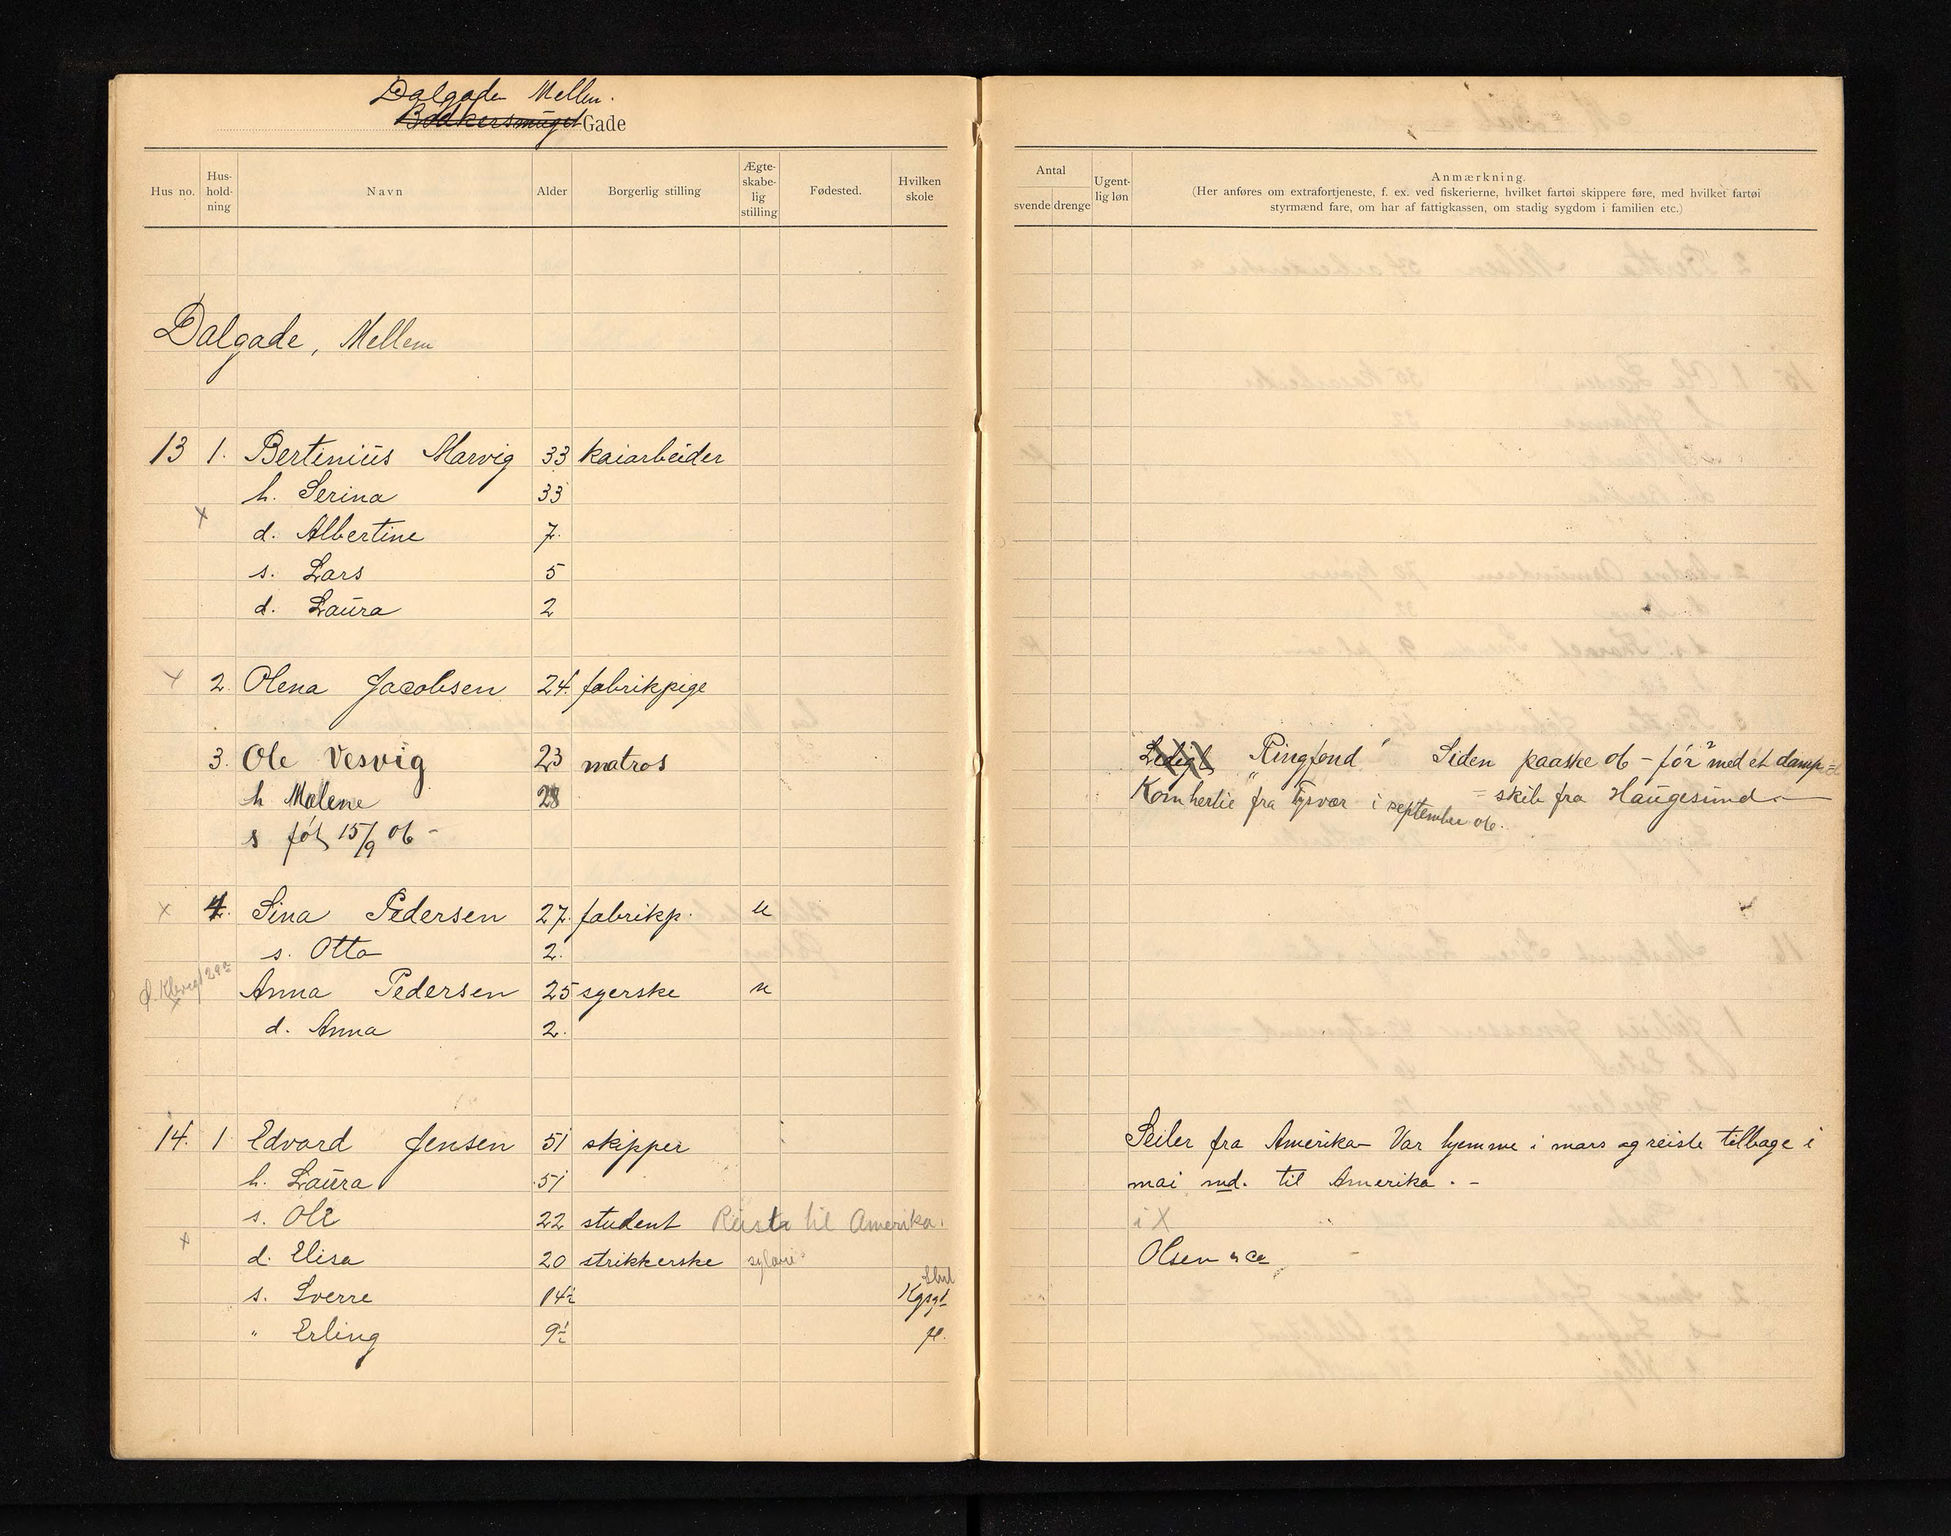 Dalgade Mellem.
Bødkersmuget Gade
Hus no. Hus-hold-ning Navn Alder Borgerlig stilling Ægte-skabe-lig stilling Fødested. Hvilken skole
Antal svende drenge Ugent-lig løn Anmærkning.
(Her anføres om extrafortjeneste, f. ex. ved fiskerierne, hvilket fartøi skippere føre, med hvilket fartøi
styrmænd fare, om har af fattigkassen, om stadig sygdom i familien etc.)
Dalgade, Mellem
13 1. Bertinius Marvig 33 kaiarbeider
h. Serina 33
x
d. Albertine 7.
s. Lars 5
d. Laura 2
x 2. Olena Jacobsen 24. fabrikpige
3. Ole Vesvig 23 matros Ledigt "Ringfond" Siden paaske 06 - før med et damp=
h Malene 28 Kom hertil fra Tysvær i september 06. =skib fra Haugesund
s født 15/9 06 -
x 4. Sina Pedersen 27. fabrikp. u
s. Otto 2.
Anna Pedersen 25 syerske u
d. Anna 2.
14. 1 Edvard Jensen 51 skipper Seiler fra Amerika Var hjemme i mars og reiste tilbage i
h. Laura 51 mai md. til Amerika. -
s. Ole 22 student Reist til Amerika. i X
x
d. Elisa 20 strikkerske Olsen & Co
s. Sverre 14½
" Erling 9½ fl.